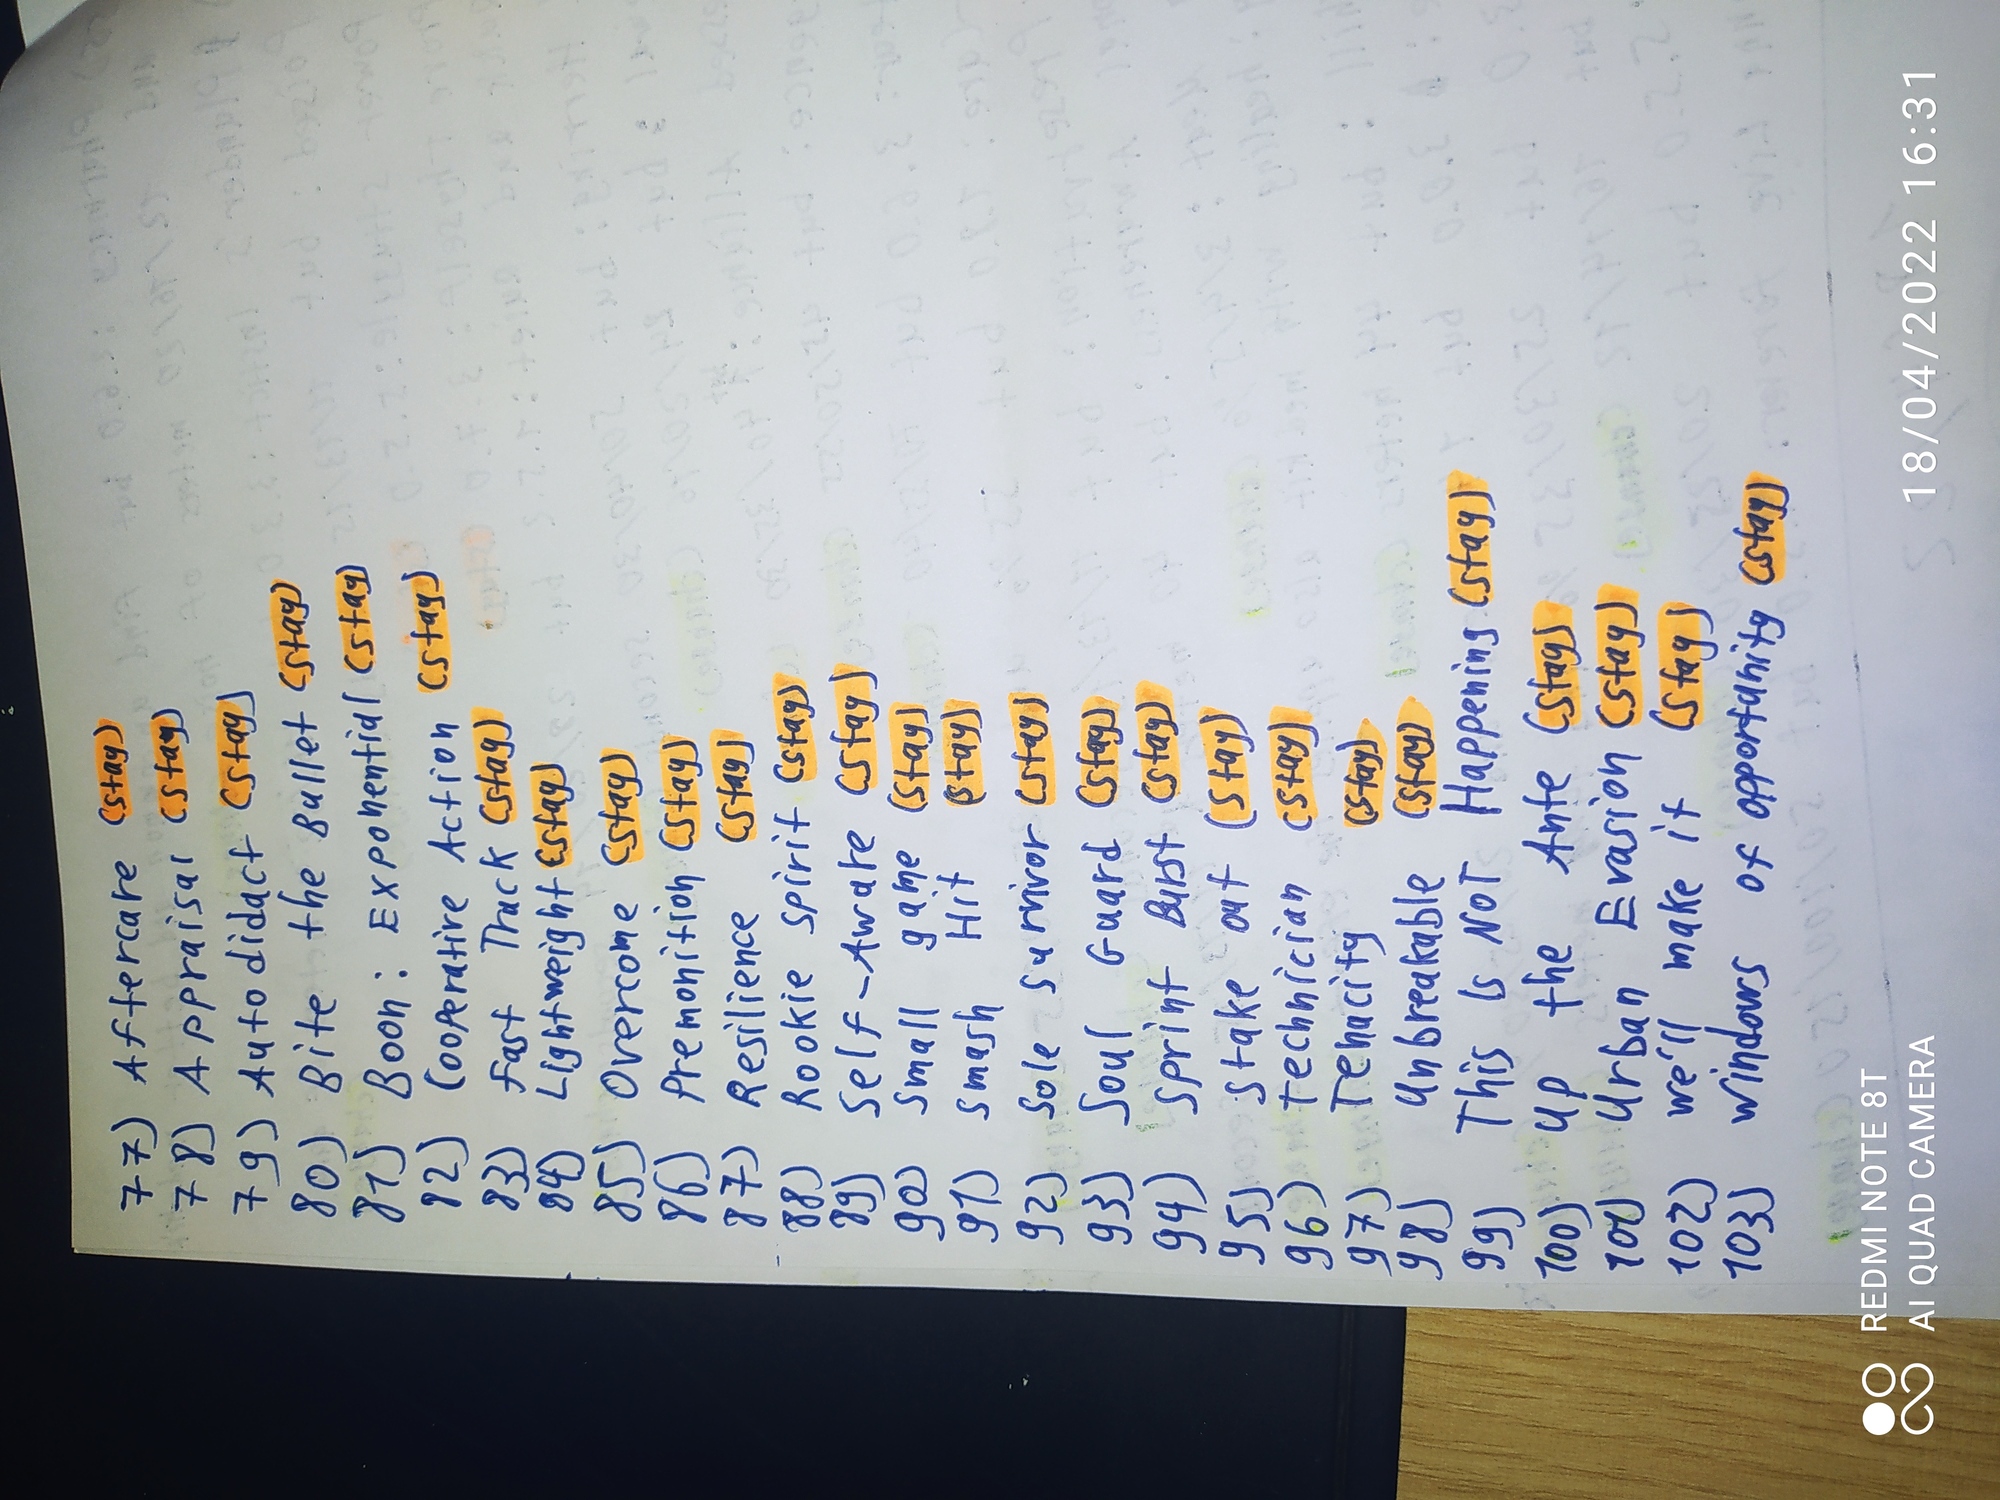 77) Aftercare (stay)
78) Appraisal (stay)
79) Autodidact (stay)
80) Bite the Bullet (stay)
81) Boon: Exponential (stay)
82) Cooperative Action (stay)
83) Fast Track (stay)
84) Lightweight (stay)
85) Overcome (stay)
86) Premonition (stay)
87) Resilience (stay)
88) Rookie spirit (stay)
89) Self-Aware (stay)
90) Small game (stay)
91) Smash Hit (stay)
92) Sole survivor (stay)
93) Soul Guard (stay)
94) Sprint Burst (stay)
95) Stake out (stay)
96) Technician (stay)
97) Tenacity (stay)
98) Unbreakable (stay)
99) This Is NOT Happening (stay)
100) Up the Ante (stay)
101) Urban Evasion (stay)
102) we'll make it (stay)
103) Windows of opportunity (stay)
REDMI NOTE 8T
AI QUAD CAMERA
18/04/2022 16:31